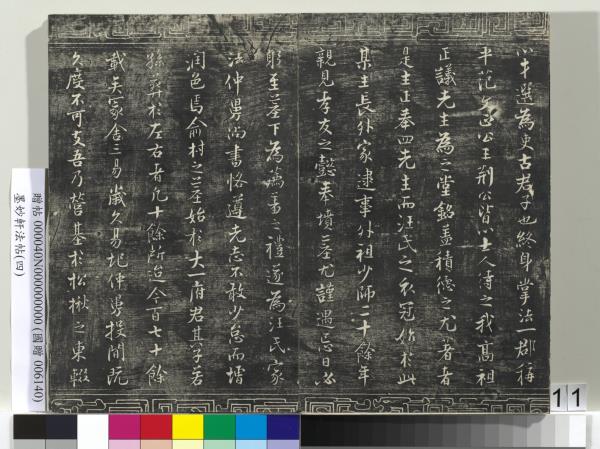 以才選為吏古君子也終身掌法一郡稱
平范文正公王荆公皆以士人待之我高祖
正議先生為之堂銘蓋積德之尤著者
是生正奉四先生而汪氏之衣冠始於此
某生長外家逮事外祖少師二十餘年
親見孝友之懿奉墳墓尤謹遇忌日必
躬至墓下為薦羞之禮遂為汪氏家
法仲舅尚書恪遵先志不敢少怠而增
润色焉俞村之墓始於大一府君其子若
孫葬於左右者凡十餘所迨今百七十餘
載矣冢舍三易歲久易圮仲舅投閒既
久度不可支吾乃營基於松楸之東輟
贈帖 000040N000000000 (國贈 006140)
墨妙軒法帖(四)
11